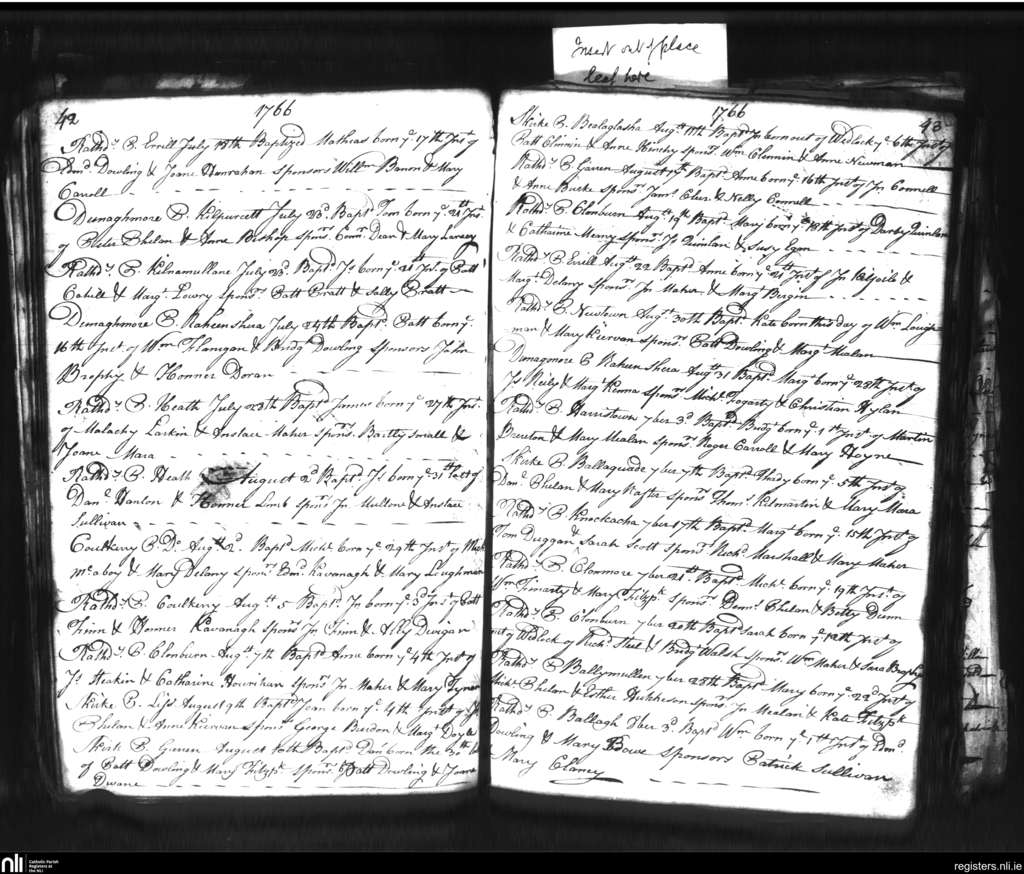 Insert out of place
leaf here
42
1766
Rathd.y P. Errill July 18th Baptized Mathias born y.e 17th Inst of
Edm.d Dowling & Joane Hanrahan sponsors Will.m Banon & Mary
Carroll
Dunaghmore P. Kilpurcett July 23.d Bapt.d Tom born y.e 21st Inst
of Peter Phelan & Anne Bishop spons.rs Dean & Mary
Rathd.y P. Kilnamullane July 23.d Bapt.d Js born y.e 21st Inst of Patt
Cahill & Marg.t Lowry spons.rs Patt Pratt & Sally Pratt
Dunaghmore P. Raheenshera July 24th Bapt.d Patt born y.e
16th Inst. of Wm Flanigan & Bridg Dowling sponsors John
Brophy & Honner Doran
Rathd.y P. Heath July 28th Bapt.d James born y.e 27th Inst
of Malachy Larkin & Anstace Maher spons.rs Bartly Small &
Joane Mara
Rathd.y P. Heath August 2.d Bapt.d Js born y.e 31st last of
Dan.l Hanlon & Honner Limb spons.rs Jn Mullone & Anstace
Sullivan
Coulkerry P. Do Aug.st 2.d Bapt.d Mich.l born y.e 29th Inst of
McAboy & Mary Delany spons.rs Edm.d Kavanagh & Mary Loughman
Rathd.y P. Coulkerry Aug.st 5 Bapt.d Jn born y.e 3.d Inst of Patt
Finn & Honner Kavanagh spons.rs Jn Finn & Ally Duigan
Rathd.y P. Clonburn Aug.st 7th Bapt.d Anne born y.e 4th Inst of
Js Harkin & Catharine Hourihan spons.rs Jn Maher & Mary
Skirke P. August 9th Bapt.d Jean born y.e 4th Inst of
Phelan & Anne Kirwan spons.rs George Burdon & Marg.t Doyle
Skirk P. Garren August 10th Bapt.d Dan.l born the 30th
of Patt Dowling & Mary Fitzp.k spons.rs Patt Dowling & Joane
Dwane
1766
43
Skirke P. Bealaglasha Aug.st 11th Bapt.d Jn born out of Wedlock y.e 6th Inst of
Patt Clommin & Anne Hinchy spons.rs Wm Clommin & Anne Newman
Rathd.y P. Garren August Bapt.d Anne born y.e 16th Inst of Jn Connell
& Anne Burke spons.rs Jam.s & Nelly Connell
Rathd.y P. Clonburn Aug.st 19th Bapt.d Mary born y.e 18th Inst of Darby Quinlan
& Catharine Meany spons.rs Js Quinlan & Susy Egan
Rathd.y P. Errill Aug.st 22 Bapt.d Anne born y.e 21st Inst of Jn &
Marg.t Delany spons.rs Jn Maher & Marg.t Bergin
Rathd.y P. Newtown Aug.st 30th Bapt.d Kate born this day of Wm Lough
man & Mary Kirwan spons.rs Patt Dowling & Marg.t Mealan
Dunagmore P. Raheen Shera Aug.st 31 Bapt.d Marg.t born y.e 28th Inst of
Js Reily & Marg.t Kenna spons.rs Mich.l Fogarty & Christian Hylan
Rathd.y P. Harristown 7ber 3.d Bapt.d Bridg born y.e 1st Inst of Martin
Brereton & Mary Mealan spons.rs Roger Carroll & Mary Hoyne
Skirke P. Ballaquade 7ber 7th Bapt.d Thady born y.e 5th Inst of
Dan.l Phelan & Mary Rafter spons.rs Thom.s Kilmartin & Mary Mara
Rathd.y P. Knockacha 7ber 17th Bapt.d Marg.t born y.e 15th Inst of
Tom Duggan & Sarah Scott spons.rs Rich.d Marshall & Mary Maher
Rathd.y P. Clonmore 7ber 21st Bapt.d Mich.l born y.e 19th Inst of
Wm Finarty & Mary Fitzp.k spons.rs Denn.s Phelan & Betty Dunn
Rathd.y P. Clonburn 7ber 20th Bapt.d Sarah born y.e 12th Inst of
out of Wedlock of Rich.d Steel & Bridg Walsh spons.rs Wm Maher & Sara Brophy
Rathd.y P. Ballymullen 7ber 28th Bapt.d Mary born y.e 22.d Inst of
Mich.l Phelan & Esther Hutcheson spons.rs Jn Mealan & Kate Fitzp.k
Rathd.y P. Ballagh 8ber 3.d Bapt.d Wm born y.e 1st Inst of Edm.d
Dowling & Mary Bowe Sponsors Patrick Sullivan
& Mary Clancy
nli
Catholic Parish
Registers at
the NLI
registers.nli.ie